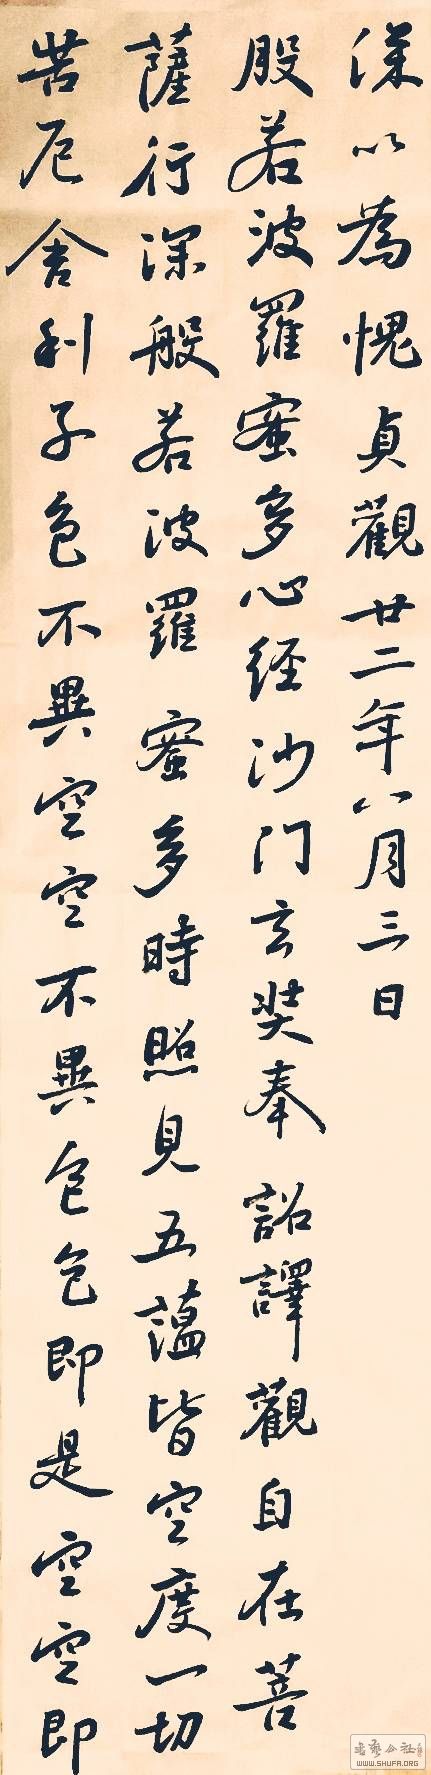 深以為愧貞觀廿二年八月三日
般若波羅蜜多心經沙门玄奘奉詔譯觀自在菩
薩行深般若波羅蜜多時照見五蘊皆空度一切
苦厄舍利子色不異空空不異色色即是空空即
WWW.SHUFA.ORG